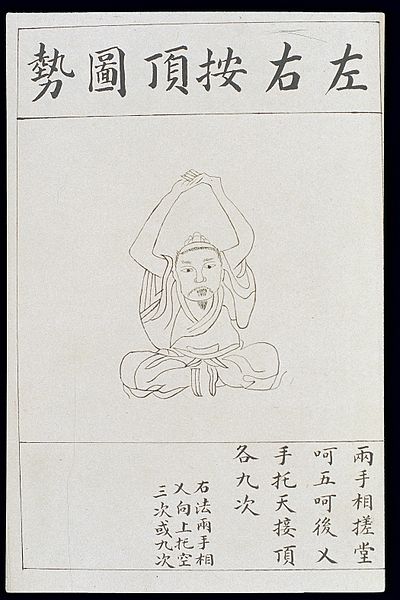 左右按頂圖勢
兩手相搓堂
呵五呵後乂
手托天接頂
各九次
右法兩手相
乂向上托空
三次或九次